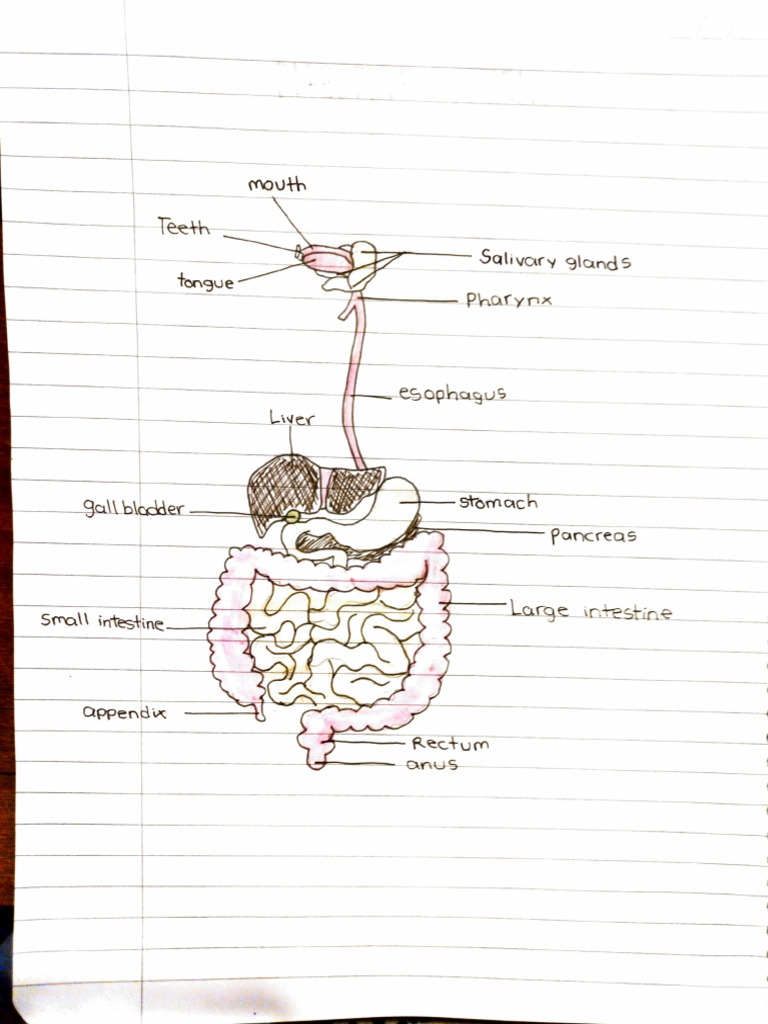 mouth
Teeth
Salivary glands
tongue
Pharynx
esophagus
Liver
stomach
gall bladder
pancreas
Large intestine
Small intestine
appendix
Rectum
anus